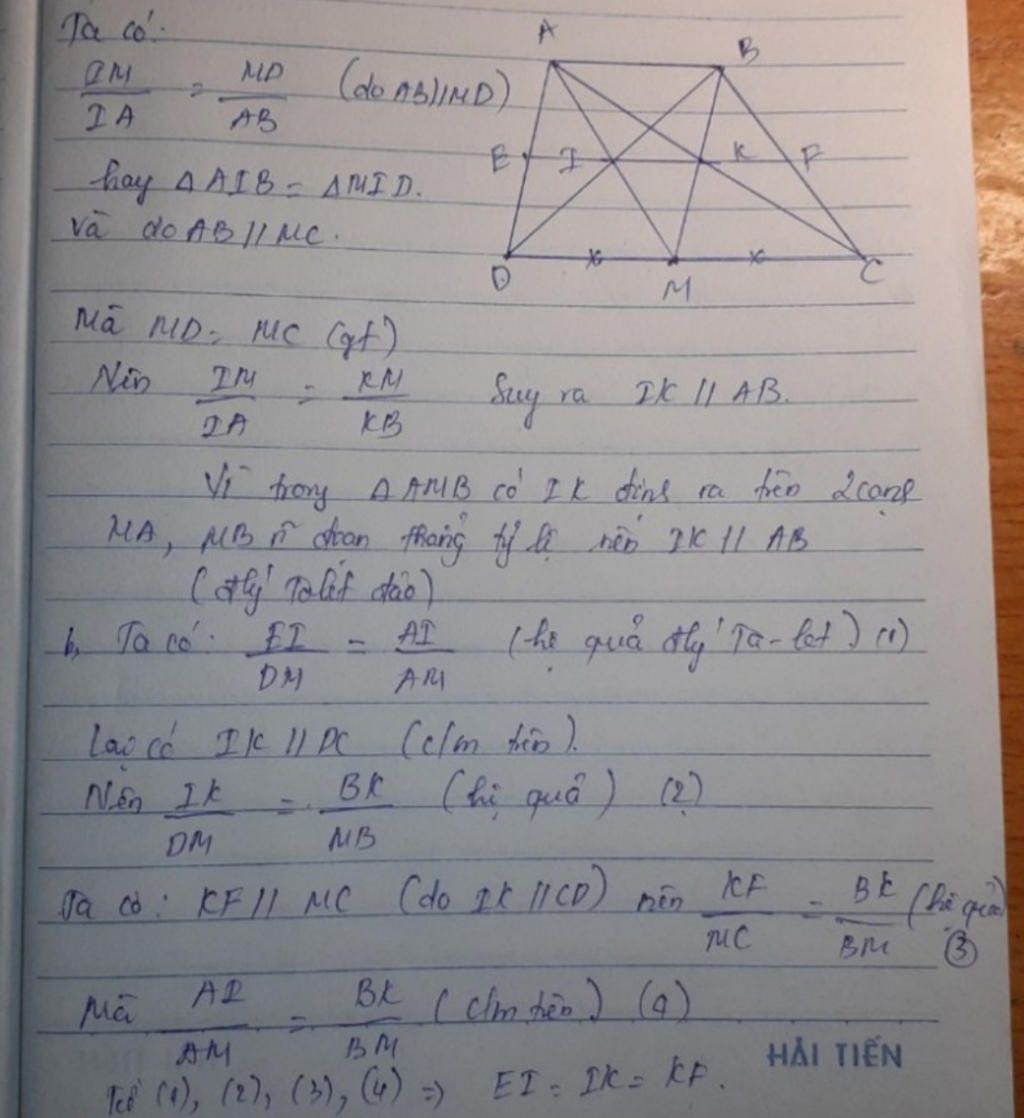 Ta có:
IM/IA = MD/AB (do AB//MD)
hay ΔAIB = ΔMID.
và do AB // MC.
A
B
E I K F
D M C
Mà MD = MC (gt)
Nên IM/IA = KM/KB Suy ra IK // AB.
Vì trong ΔAMB có IK định ra trên 2 cạnh
MA, MB n~ đoạn thẳng tỷ lệ nên IK // AB
(đlý Talét đảo)
b, Ta có: EI/DM = AI/AM (hệ quả đlý Ta-let) (1)
Lại có IK // DC (c/m trên).
Nên IK/DM = BK/MB (hệ quả) (2)
Ta có: KF // MC (do IK // CD) nên KF/MC = BK/BM (hệ quả) (3)
Mà AI/AM = BK/BM (c/m trên) (4)
HẢI TIẾN
Từ (1), (2), (3), (4) => EI = IK = KF.